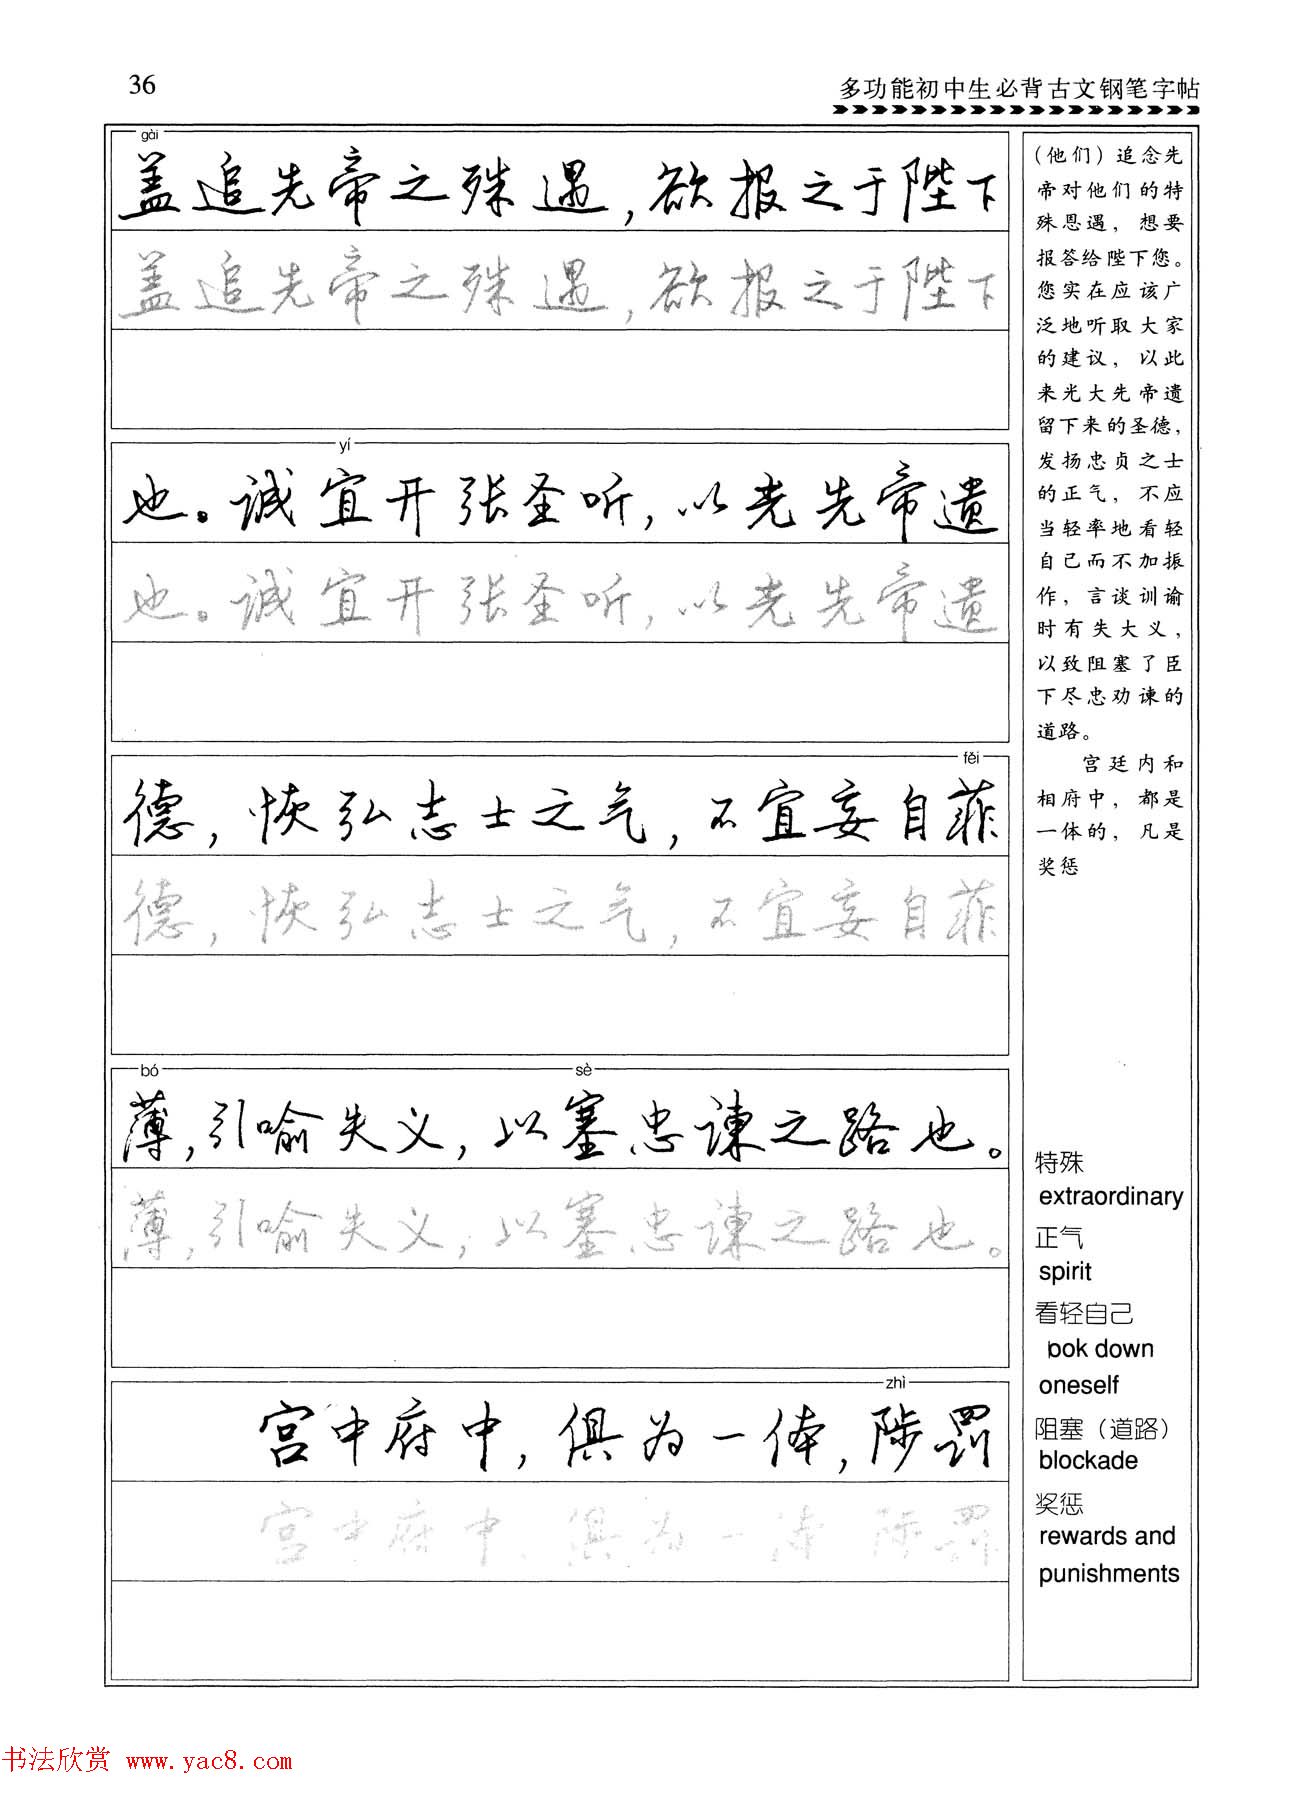 36
多功能初中生必背古文钢笔字帖
gài
盖追先帝之殊遇,欲报之于陛下
盖追先帝之殊遇,欲报之于陛下
yí
也。诚宜开张圣听,以光先帝遗
也。诚宜开张圣听,以光先帝遗
fěi
德,恢弘志士之气,不宜妄自菲
德,恢弘志士之气,不宜妄自菲
bó sè
薄,引喻失义,以塞忠谏之路也。
薄,引喻失义,以塞忠谏之路也。
zhì
宫中府中,俱为一体,陟罚
宫中府中,俱为一体,陟罚
(他们)追念先
帝对他们的特
殊恩遇,想要
报答给陛下您。
您实在应该广
泛地听取大家
的建议,以此
来光大先帝遗
留下来的圣德,
发扬忠贞之士
的正气,不应
当轻率地看轻
自己而不加振
作,言谈训谕
时有失大义,
以致阻塞了臣
下尽忠劝谏的
道路。
宫廷内和
相府中,都是
一体的,凡是
奖惩
特殊
extraordinary
正气
spirit
看轻自己
look down
oneself
阻塞(道路)
blockade
奖惩
rewards and
punishments
书法欣赏 www.yac8.com